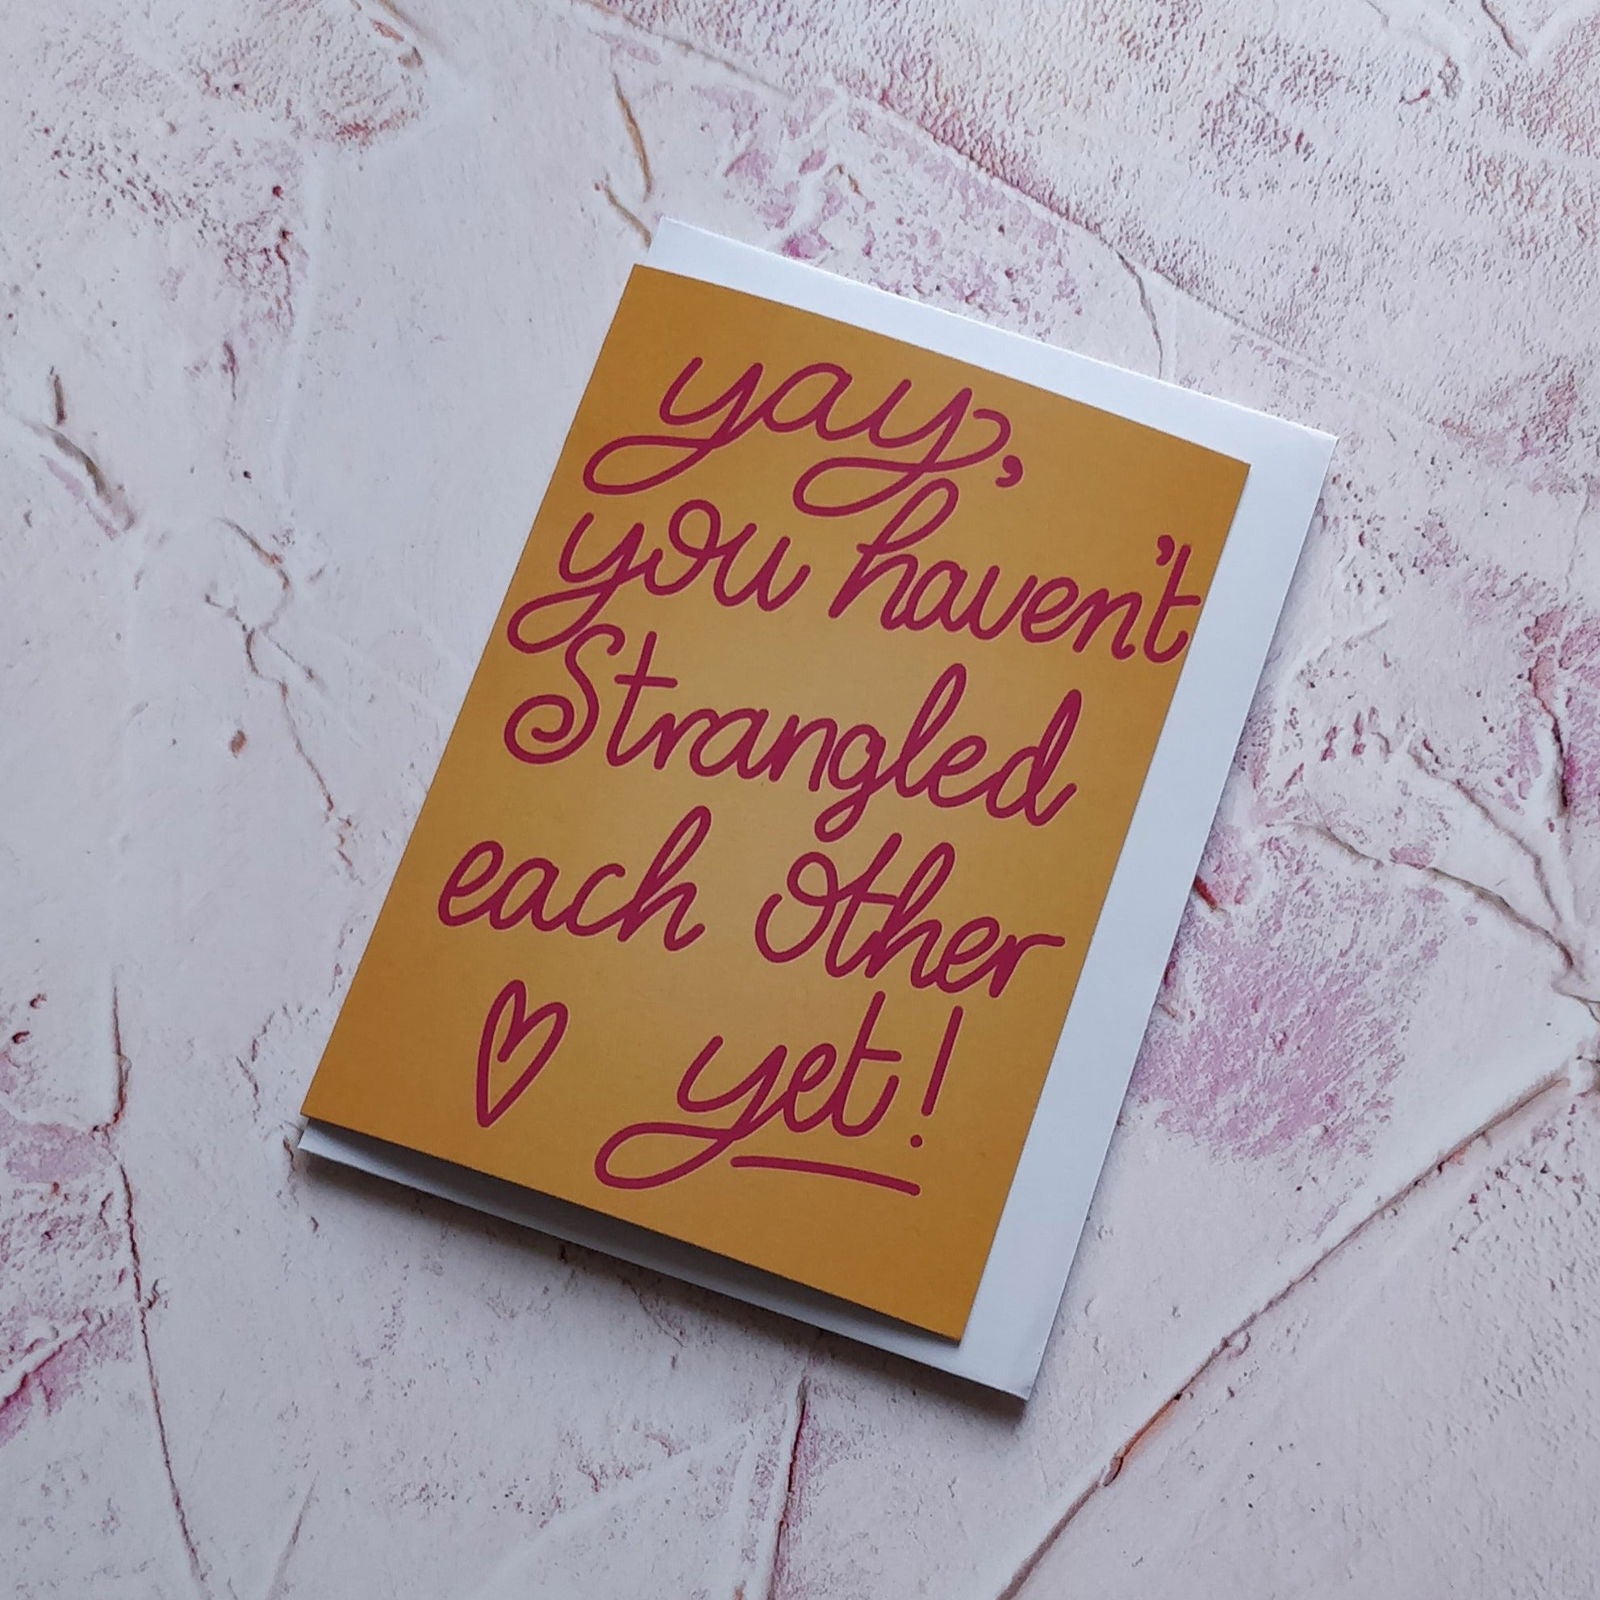 yay,
you haven't
Strangled
each other
yet!